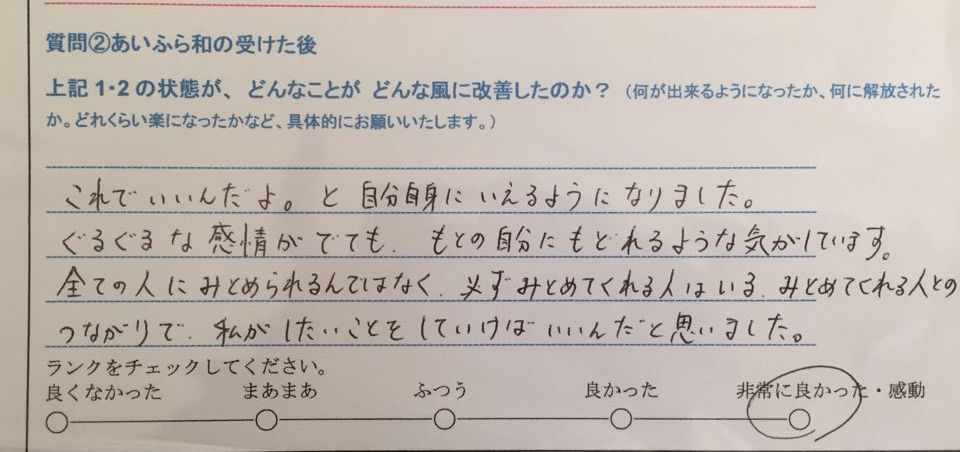 質問②あいふら和の受けた後
上記1・2の状態が、どんなことが どんな風に改善したのか？（何が出来るようになったか、何に解放された
か。どれくらい楽になったかなど、具体的にお願いいたします。）
これでいいんだよ。と 自分自身に いえるように なりました。
ぐるぐるな感情がでても、もとの自分にもどれるような気がしています。
全ての人にみとめられるんではなく、必ずみとめてくれる人はいる、みとめてくれる人との
つながりで、私がしたいことをしていけばいいんだと思いました。
ランクをチェックしてください。
良くなかった まあまあ ふつう 良かった 非常に良かった・感動